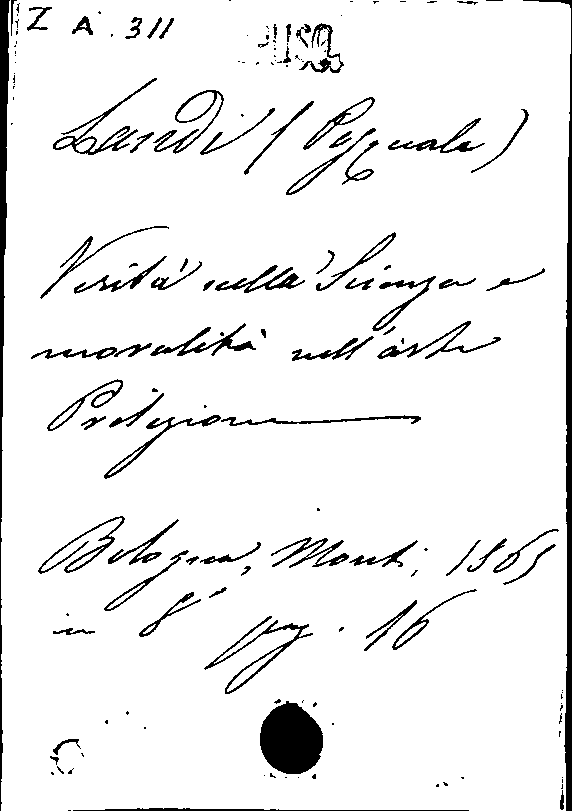 Z A. 311
Landi (Pasquale)
Verità nella Scienza e
moralità nell'arte
Prolezione
Bologna, Monti, 1865
in 8° pag. 16